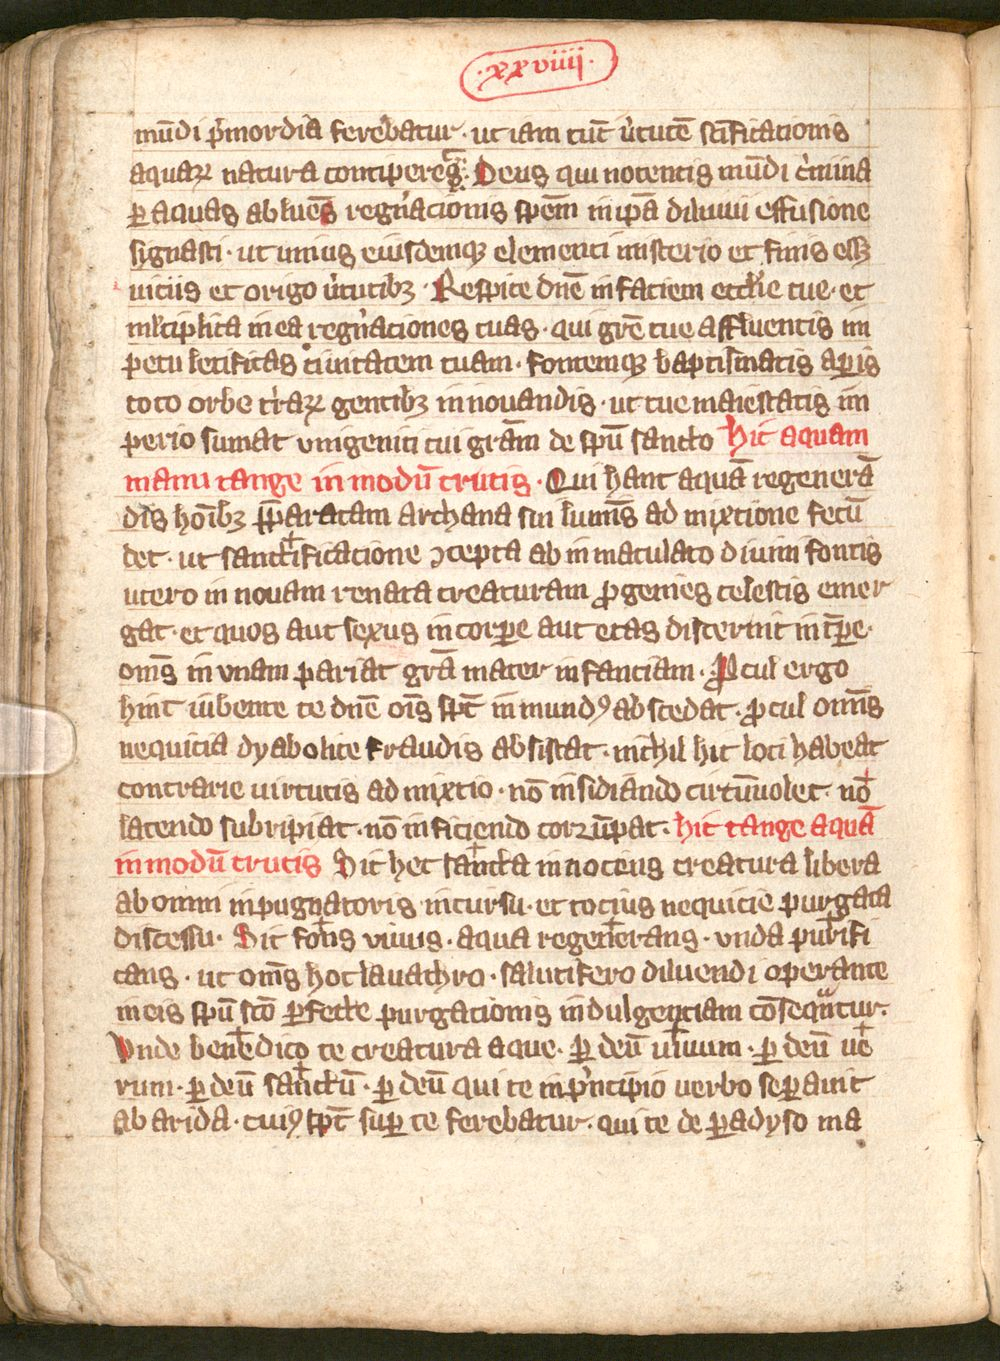 ·xxviiij·
mūdi pͥmordia ferebatur· ut iam tūc ůtutē sc̄ificacionis
aquaꝝ natura conciperet· Deus qui nocentis mūdi cͥmina
ꝑ aquas abluēs regn̓acionis spēm in ip̄a diluuii effusione
signasti· ut unius eiusdemqꝫ elementi misterio et finis eēꝫ
uiciis et origo ůtutibꝫ· Respice dn̄e in faciem eccl̓ie tue· et
ml̓tiplica in ea regn̓aciones tuas· qui gr̄e tue affluentis in
petu letificas ciuitatem tuam· fontemqꝫ baptismatis aꝑis
toto orbe tr̓aꝝ gentibꝫ innouandis· ut tue maiestatis im
perio sumat vnigeniti tui grām de spū sancto Hic aquam
manu tange in modū crucis· Qui hanc aquā regenerā
dis hoı̄bꝫ p̄paratam archana sui lumı̄s ad mixtione fecū
det· ut sancti✝ficacione ↄcepta ab inmaculato diuini fontis
utero in nouam renata creaturam ꝓgenies celestis emer
gat· et quos aut sexus in corꝑe aut etas discernit in tp̄e·
om̄s in vnam pariat grā mater infanciam· Ꝓcul ergo
hinc iubente te dn̄e oı̄s sp̄c inmundꝯ abscedat· ꝓcul om̄s
nequicia dyabolice fraudis absistat· nichil hic loci habeat
contrarie uirtutis admixtio· nō insidiando circūuolet· nō
latendo subripiat· nō inficiendo corrūpat· hic tange aquā
in modū crucis Sit hec san✝cta innocens creatura libera
ab omni inpugnatoris incursu· et tocius nequicie purgata
discessu· Sit fo✝ns viuus· aqua regene✝rans· vnda puri✝fi
cans· ut om̄s hoc lauachro· salutifero diluendi operante
in eis spū sc̄o ꝑfecte purgacionis indulgenciam cōsequātur·
Vnde bene✝dico te creatura aque· ꝑ deū ui✝uum· ꝑ deū ue✝
rum· ꝑ deū san✝ctū· ꝑ deū qui te in pͥncipio uerbo seꝑauit
ab arida· cuiꝯ sp̄c suꝑ te ferebatur· qui te de ꝑadyso ma